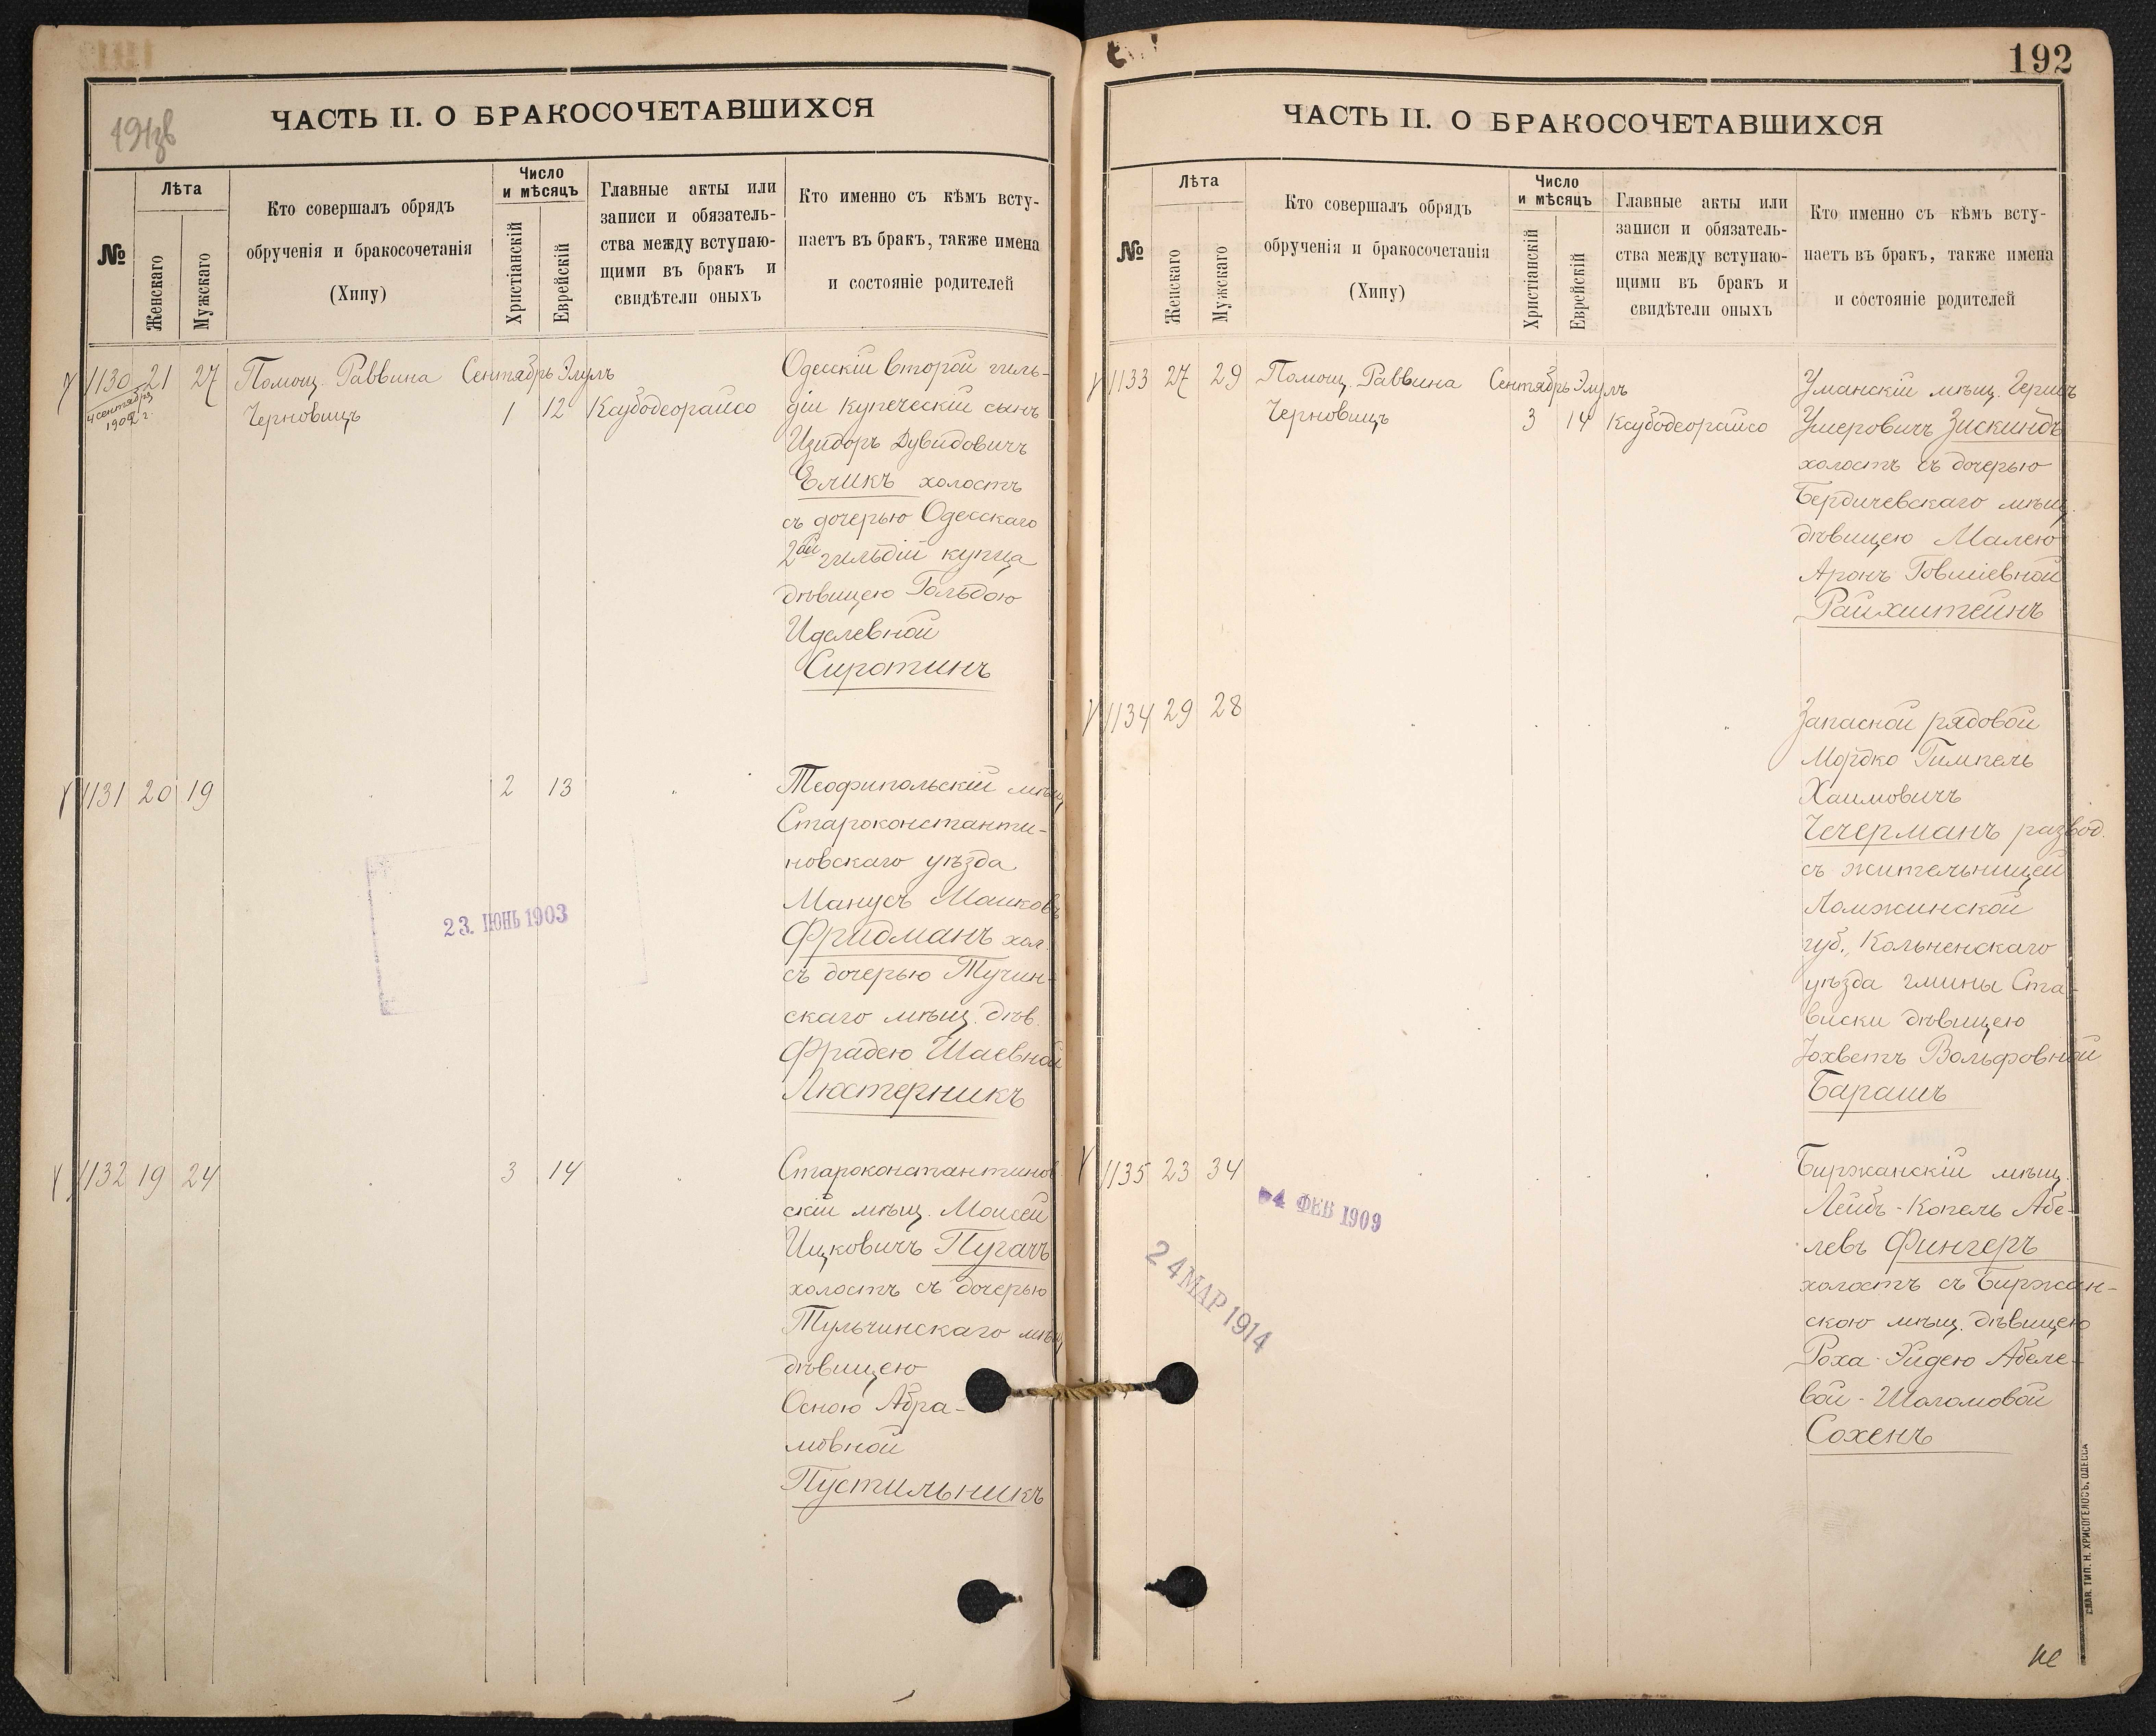 ЧАСТЬ II. О БРАКОСОЧЕТАВШИХСЯ
№
Лѣта
Женскаго
Мужскаго
Кто совершалъ обрядъ
обрученія и бракосочетанія
(Хипу)
Число
и мѣсяцъ
Христіанскій
Еврейскій
Главные акты или
записи и обязатель-
ства между вступаю-
щими въ бракъ и
свидѣтели оныхъ
Кто именно съ кѣмъ всту-
паетъ въ бракъ, также имена
и состояніе родителей
1130 21 27 Помощ. Раввина Сентябрь Элулъ
4 сентября
1902 г
Черновицъ 1 12 Ксубодеорайсо
Одесскій второй гиль-
діи купеческій сынъ
Изидоръ Дувидовичъ
Еликъ холостъ
съ дочерью Одесскаго
2ой гильдій купца
дѣвицею Гольдою
Иделевной
Сиротинъ
1131 20 19 " 2 13 "
Теофипольскій мѣщ
Староконстанти-
новскаго уѣзда
Манусъ Мошковъ
Фридманъ хол.
съ дочерью Тучин-
скаго мѣщ. дѣв.
Фрадею Шаевной
Люстерникъ
23. ІЮНЬ 1903
1132 19 24 " 3 14 "
Староконстантинов
скій мѣщ. Моисей
Ицковичъ Пугачъ
холостъ съ дочерью
Тульчинскаго мѣщ
дѣвицею
Осною Абра-
мовной
Пустильникъ
192
ЧАСТЬ II. О БРАКОСОЧЕТАВШИХСЯ
№
Лѣта
Женскаго
Мужскаго
Кто совершалъ обрядъ
обрученія и бракосочетанія
(Хипу)
Число
и мѣсяцъ
Христіанскій
Еврейскій
Главные акты или
записи и обязатель-
ства между вступаю-
щими въ бракъ и
свидѣтели оныхъ
Кто именно съ кѣмъ всту-
паетъ въ бракъ, также имена
и состояніе родителей
1133 27 29 Помощ. Раввина Сентябрь Элулъ
Черновицъ 3 14 Ксубодеорайсо
Уманскій мѣщ. Гершъ
Умеровичъ Зискиндъ
холостъ съ дочерью
Бердичевскаго мѣщ.
дѣвицею Малею
Аронъ Говшіевной
Райхштейнъ
1134 29 28 " " " "
Запасной рядовой
Мордко Гимпель
Хаимовичъ
Чечерманъ развод.
съ жительницей
Ломжинской
губ., Кольненскаго
уѣзда гмины Ста-
виски дѣвицею
Іохветъ Вольфовной
Барашъ
1135 23 34
Биржанскій мѣщ.
Лейбъ-Копель Абе-
левъ Фингеръ
холостъ съ Биржан-
скою мѣщ. дѣвицею
Роха-Эидею Абеле-
вой-Шоломовой
Сохенъ
4 ФЕВ 1909
24 МАР 1914
СЛАВ. ТИП. Н. ХРИСОГЕЛОСЪ, ОДЕССА